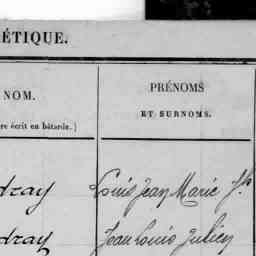 ÉTIQUE.
NOM.
re écrit en bâtarde.)
PRÉNOMS
ET SURNOMS.
dray Louis Jean Marie
dray Jean Louis Julien